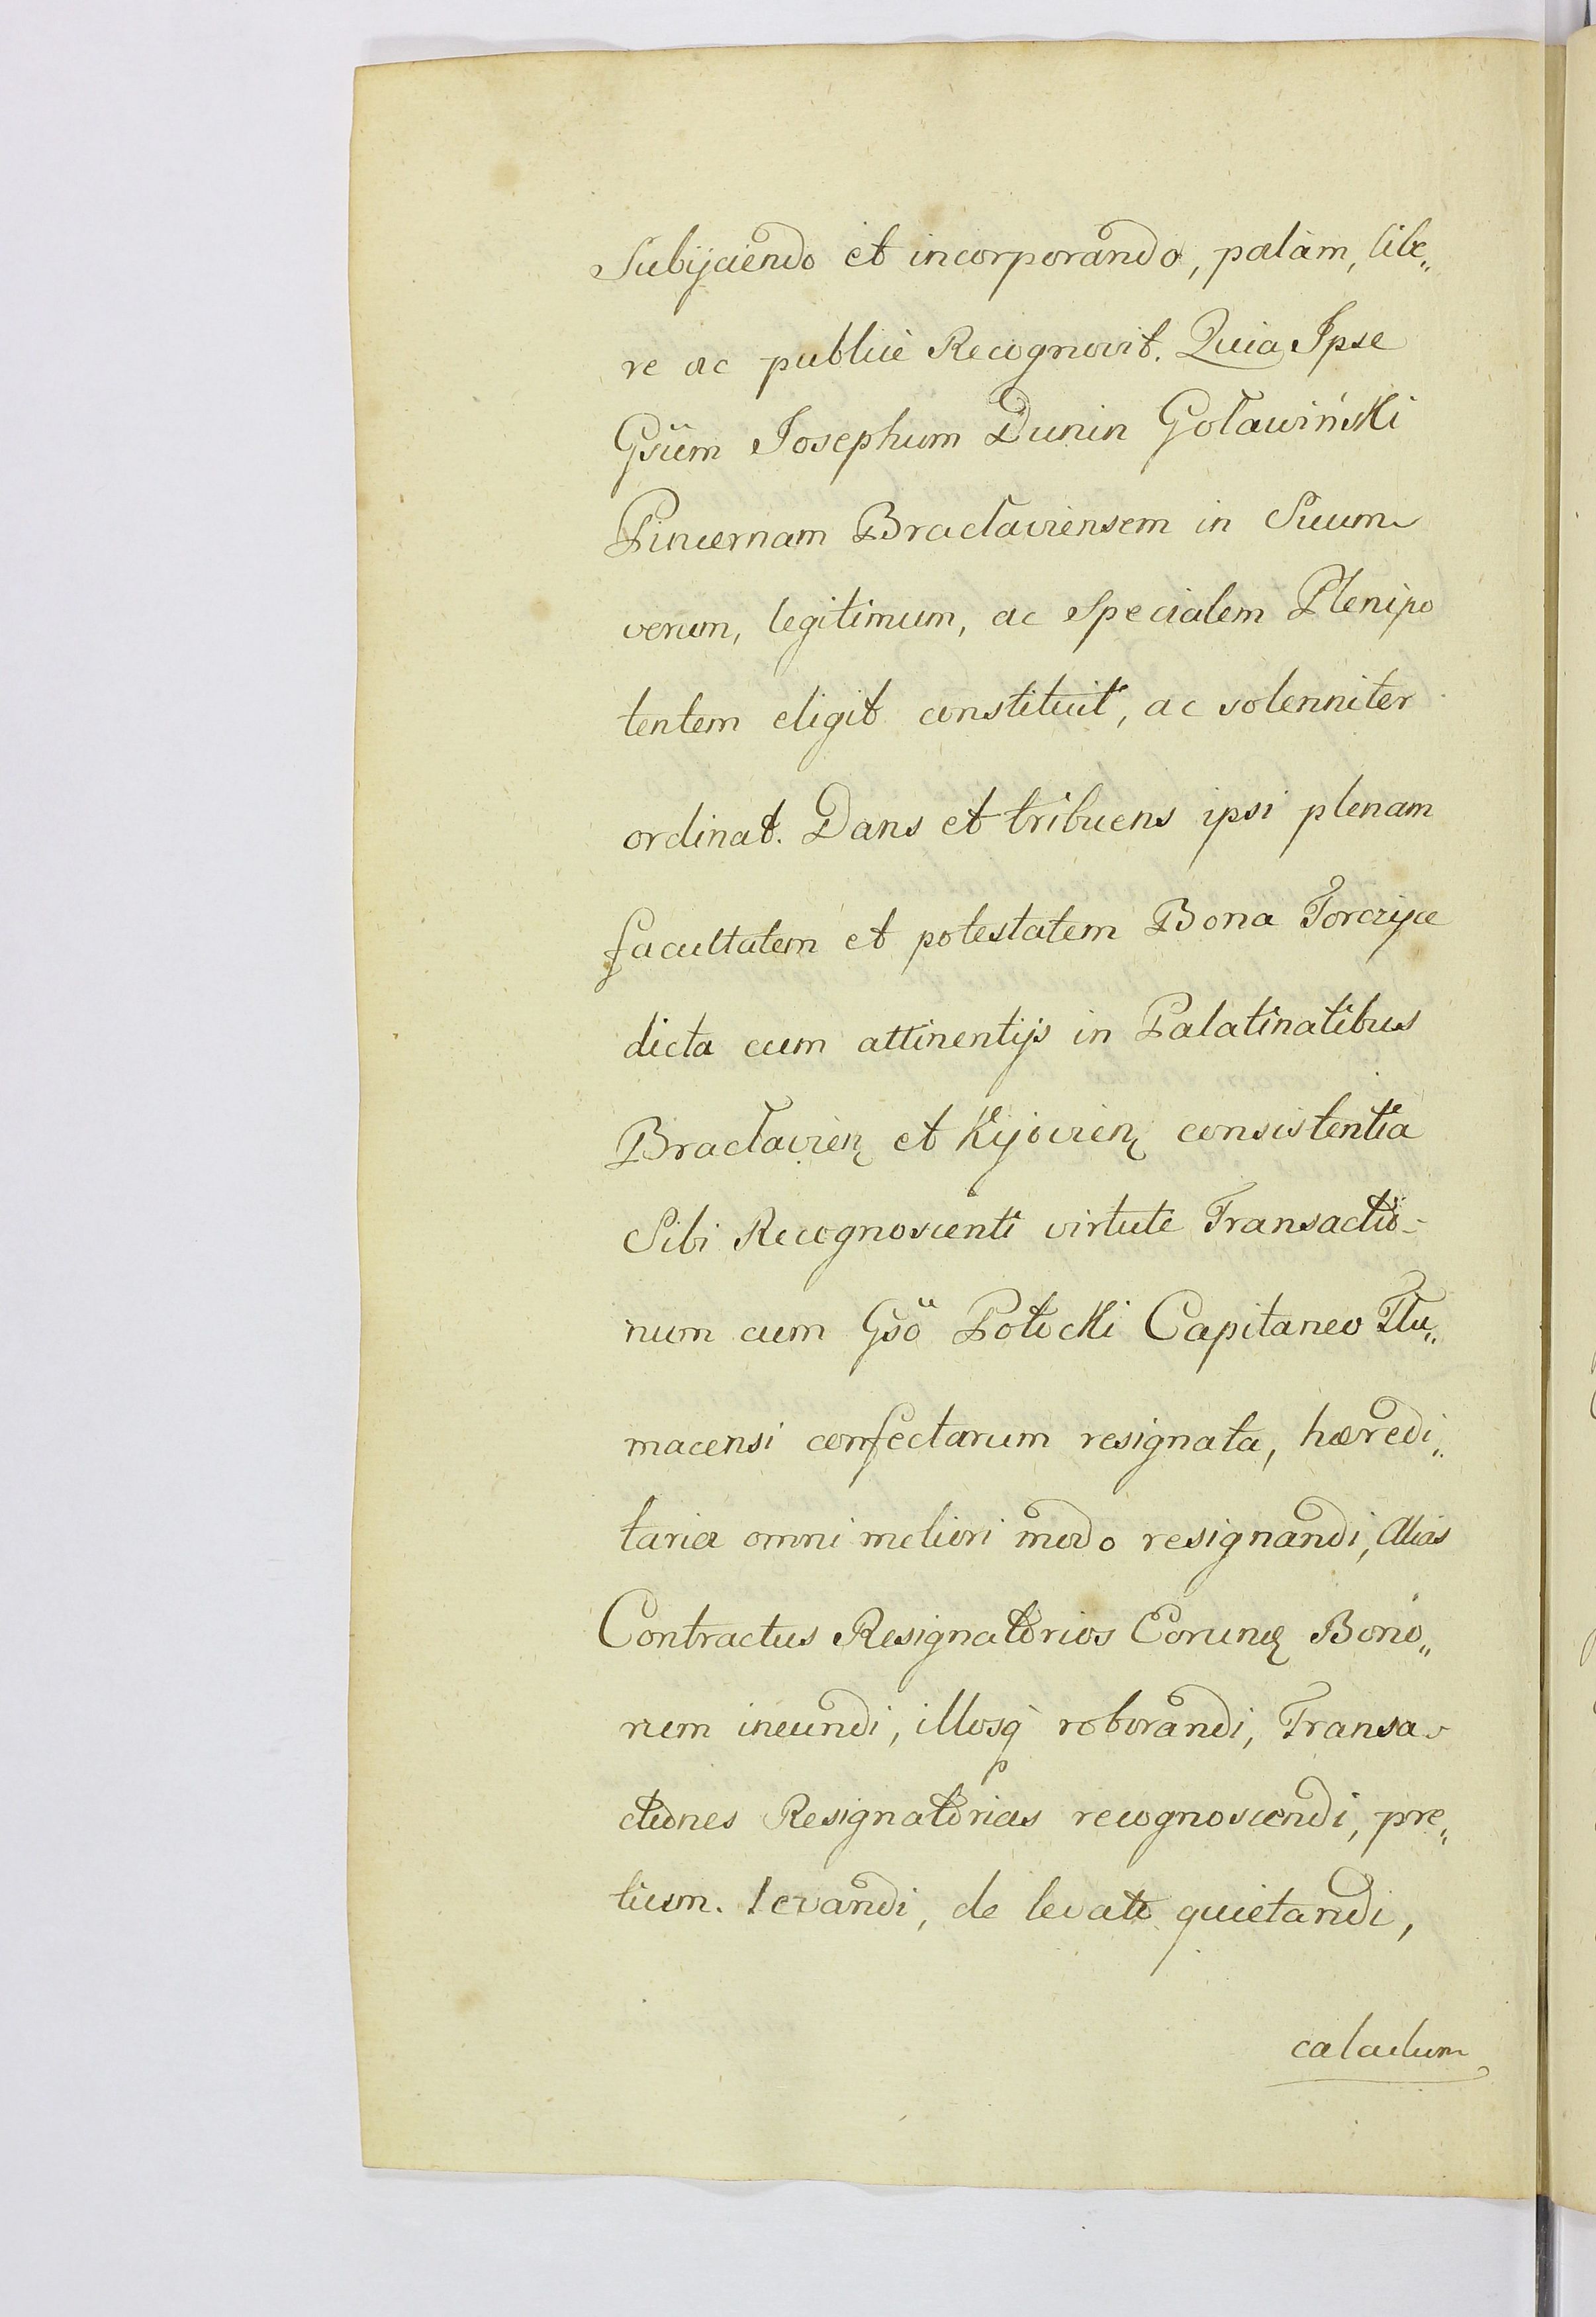 Subijciendo et incorporando, palàm, libe„
re ac publicè Recognovit. Quia Ipse
Gsüm Josephum Dunin Goławiński
Pincernam Bracłaviensem in Suum
verum, legitimum, ac Specialem Plenipo
tentem eligit constituit, ac solenniter
ordinat. Dans et tribuens ipsi plenam
facultatem et potestatem Bona Torczyce
dicta cum attinentijs in Palatinatibus
Bracłavien et Kijovien consistentia
Sibi Recognoscenti virtute Transactio-
num cum Gsö Potocki Capitaneo Tłu„
macensi confectarum resignata, hæredi„
taria omni meliori modo resignandi, Alias
Contractus Resignatorios Eorundz Bono„
rum ineundi, illosq̀ roborandi, Transa-
ctiones Resignatorias recognoscendi, pre„
tium levandi, de levato quietandi,
calculum